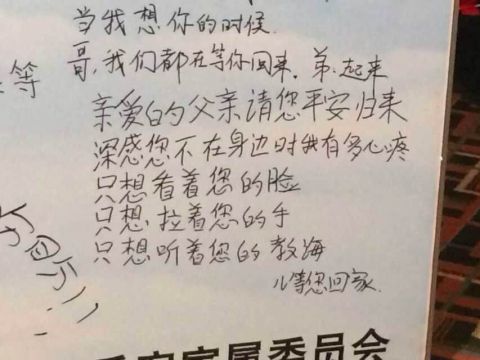 当我想你的时候.
哥,我们都在等你回来. 弟:起来
等
亲爱的父亲请您平安归来
深感您不在身边时我有多心疼
只想看着您的脸
只想拉着您的手
只想听着您的教海
儿等您回家.
家属委员会